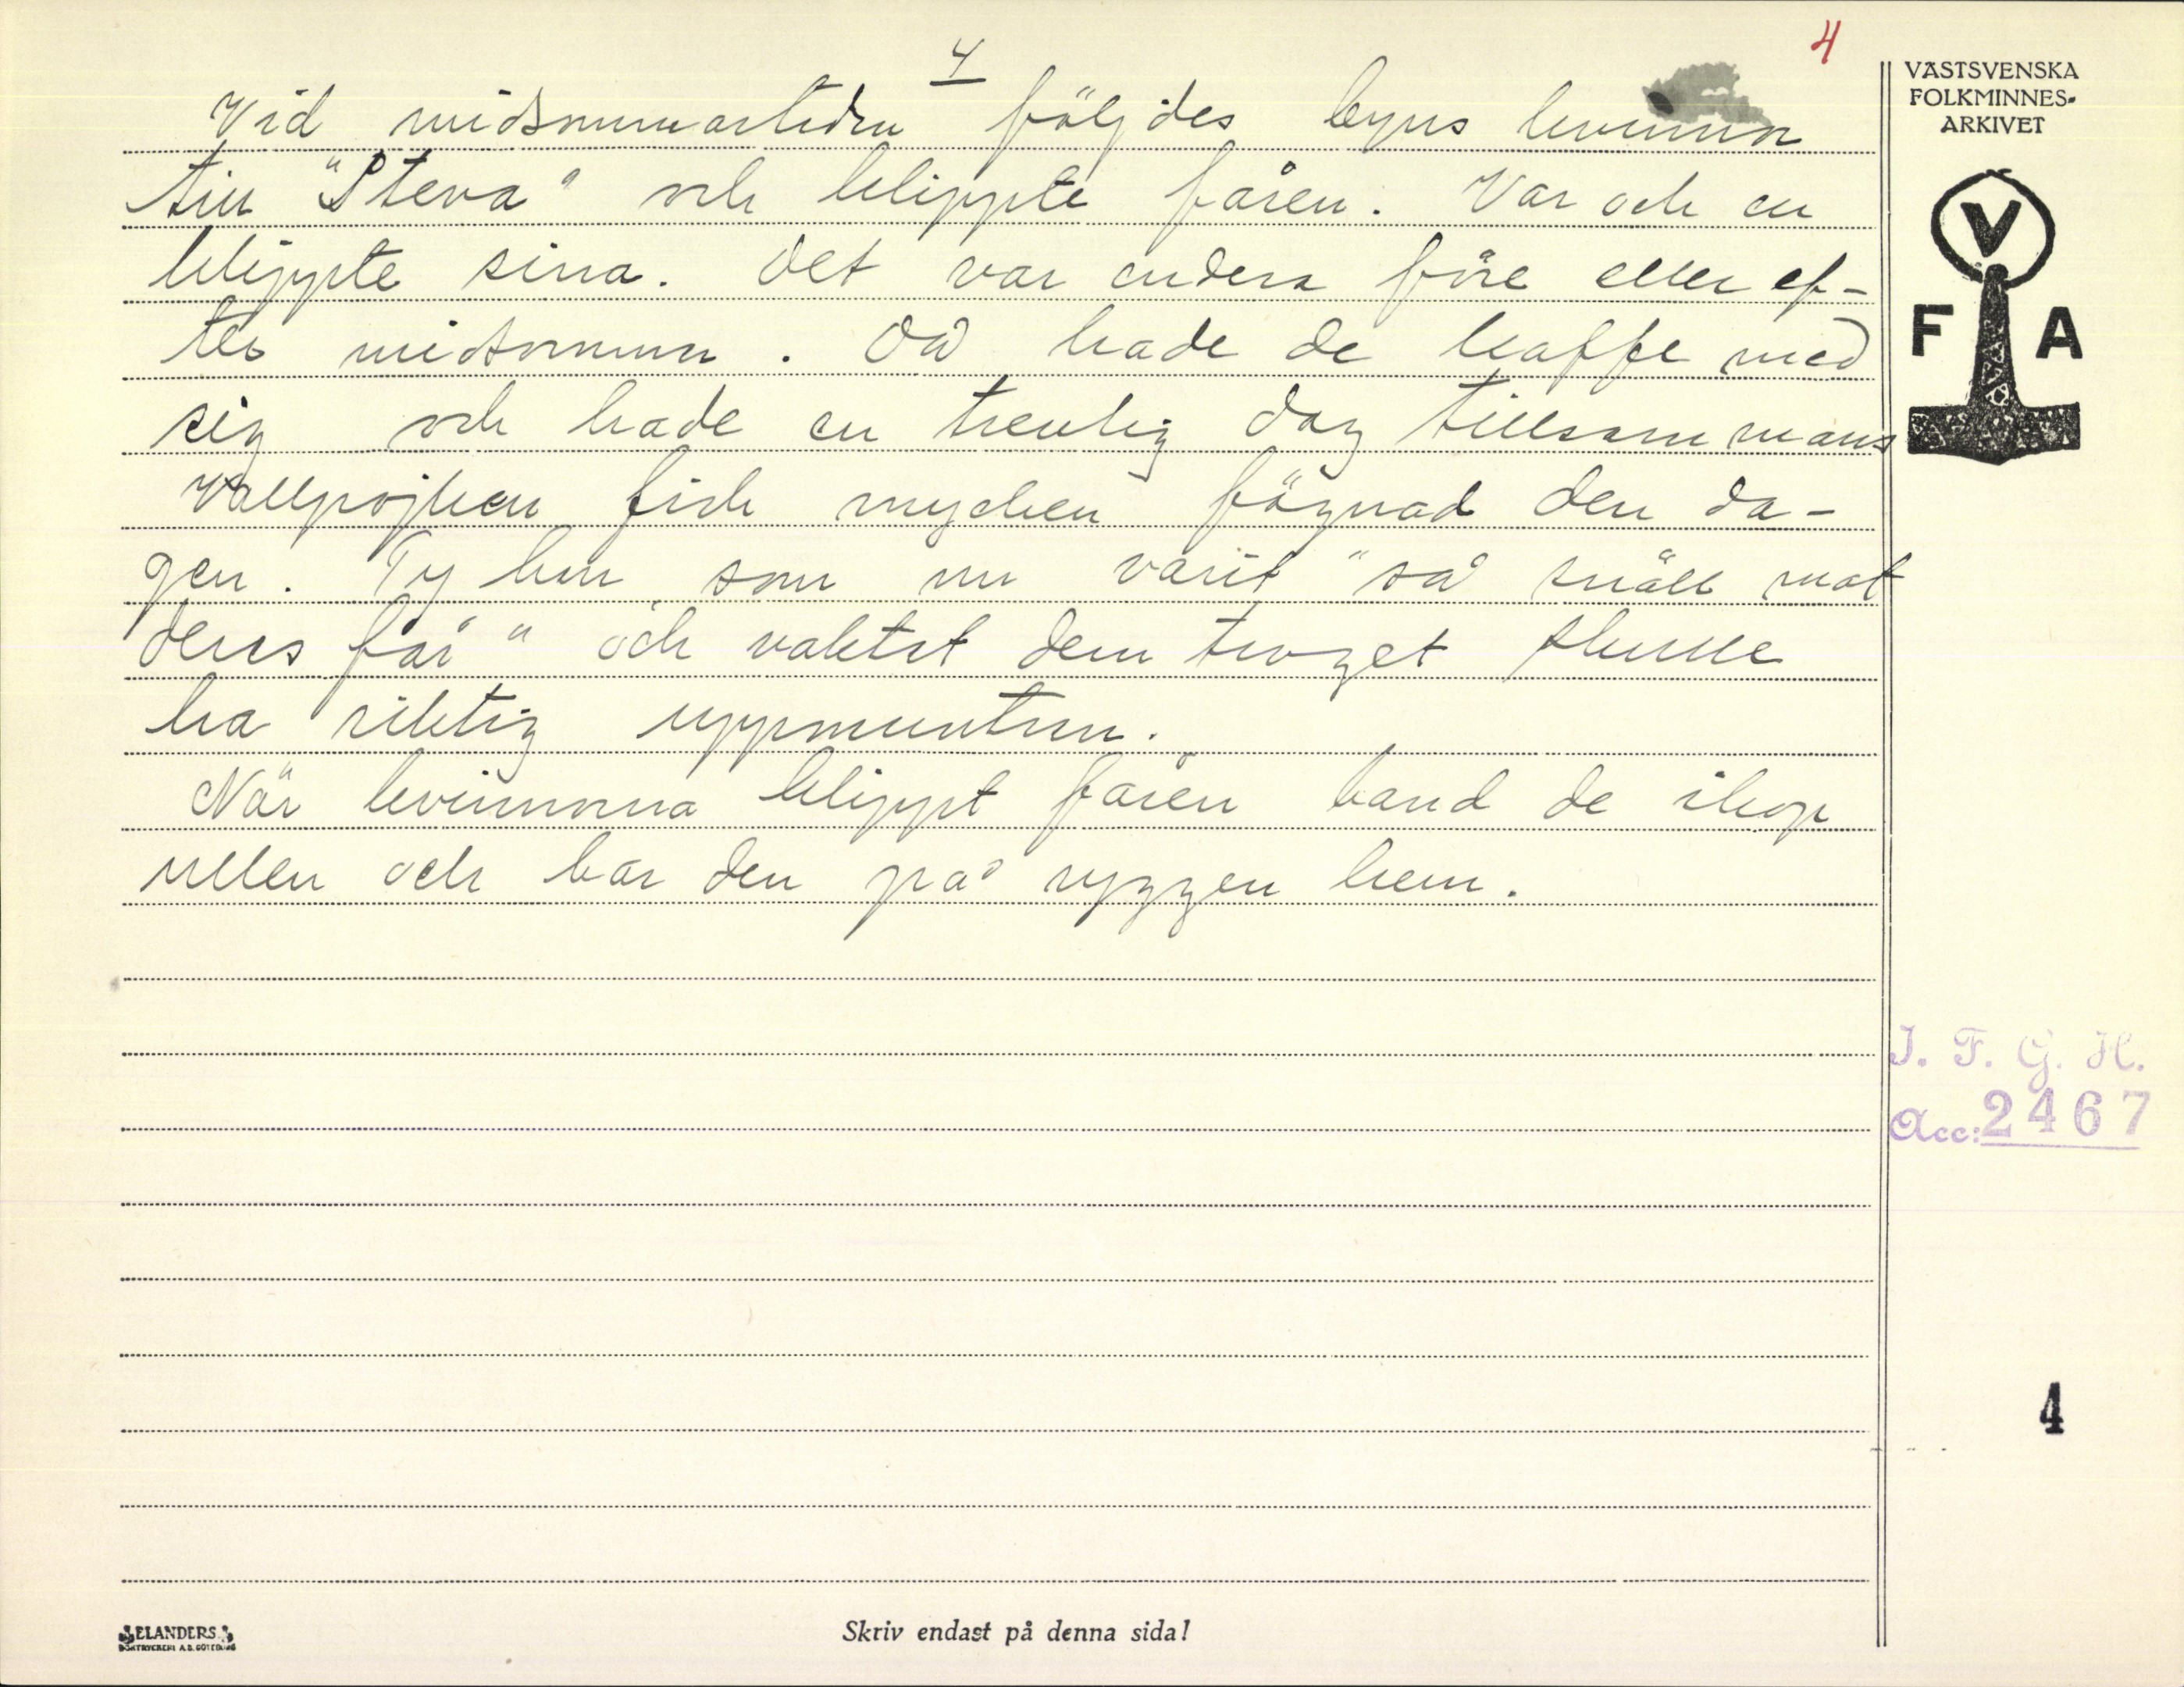 4
4
Vid midsommartiden följdes byns kvinnor
till "Steva" och klippte fåren. Var och en
klippte sina. Det var endera före eller ef-
ter midsommar. Då hade de kaffe med
sig och hade en trevlig dag tillsammans
Vallpojken fick mycken fägnad den da-
gen. Ty han som nu varit "så snäll mot
deres får" och vaktat dem troget skulle
ha riktig uppmuntran.
När kvinnorna klippt fåren band de ihop
ullen och bar den på ryggen hem.
VÄSTSVENSKA
FOLKMINNES-
ARKIVET
V
F A
I. F. G. H.
Acc: 2467
4
ELANDERS
BOKTRYCKERI A.B. GÖTEBORG
Skriv endast på denna sida!